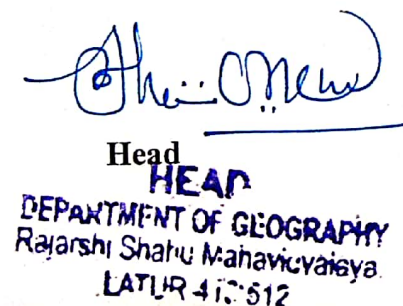 Head
HEAD
DEPARTMENT OF GEOGRAPHY
Rajarshi Shahu Mahavidyalaya
LATUR